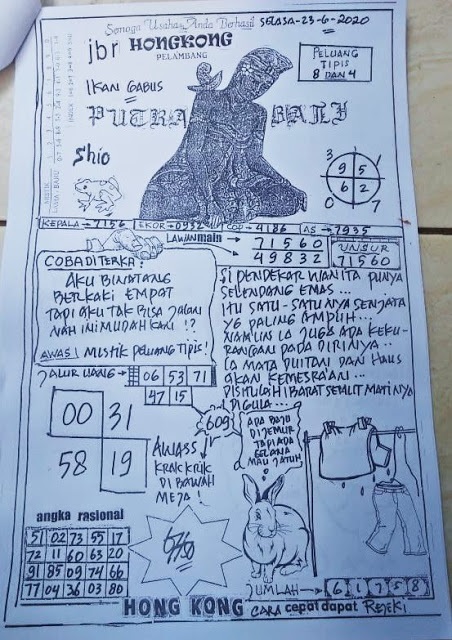 Semoga Usaha Anda Berhasil SELASA-23-6-2020
jbr HONGKONG
PELAMBANG
PELUANG
TIPIS
8 DAN 4
IKAN GABUS
PUTRA BALI
Shio
3 7
9 5
6 2
0 7
KEPALA → 7156 EKOR → 0932 COP → 4186 AS → 7935
LAWAN main → 71560
49832
UNSUR
71560
COBA DITERKA :
AKU BINATANG
BERKAKI EMPAT
TAPI AKU TAK BISA JALAN
NAH INI MUDAH KAN !?
AWAS ! MISTIK PELUANG TIPIS !
SI PENDEKAR WANITA PUNYA
SELENDANG EMAS ...
ITU SATU-SATUNYA SENJATA
YG PALING AMPUH ...
NAMUN IA JUGA ADA KEKU-
RANGAN PADA DIRINYA ..
IA MATA DUITAN DAN HAUS
AKAN KEMESRAAN ...
DIGULA ...
JALUR UANG → 06 53 71
47 15
609
00 31
58 19
AWASS
KRAK KRIK
DI BAWAH
MEJA !
ADA BAJU
DI JEMUR
TAPI ADA
CELANA
MAU JATUH
angka rasional
51 02 73 55 17
72 11 60 63 20
91 85 09 74 66
77 04 36 03 80
JUMLAH → 6 1 7 5 8
HONG KONG CARA cepat dapat REJEKI